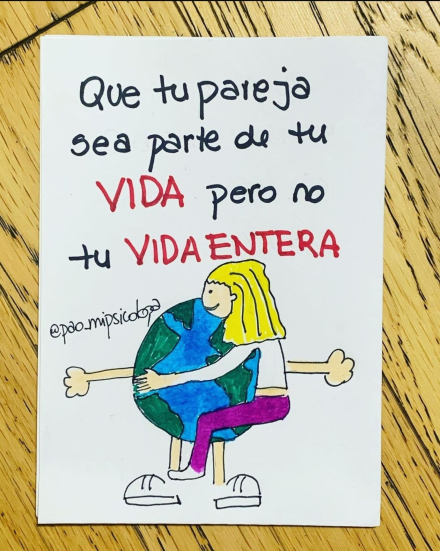 Que tu pareja
sea parte de tu
VIDA pero no
tu VIDA ENTERA
@pao_mipsicologa